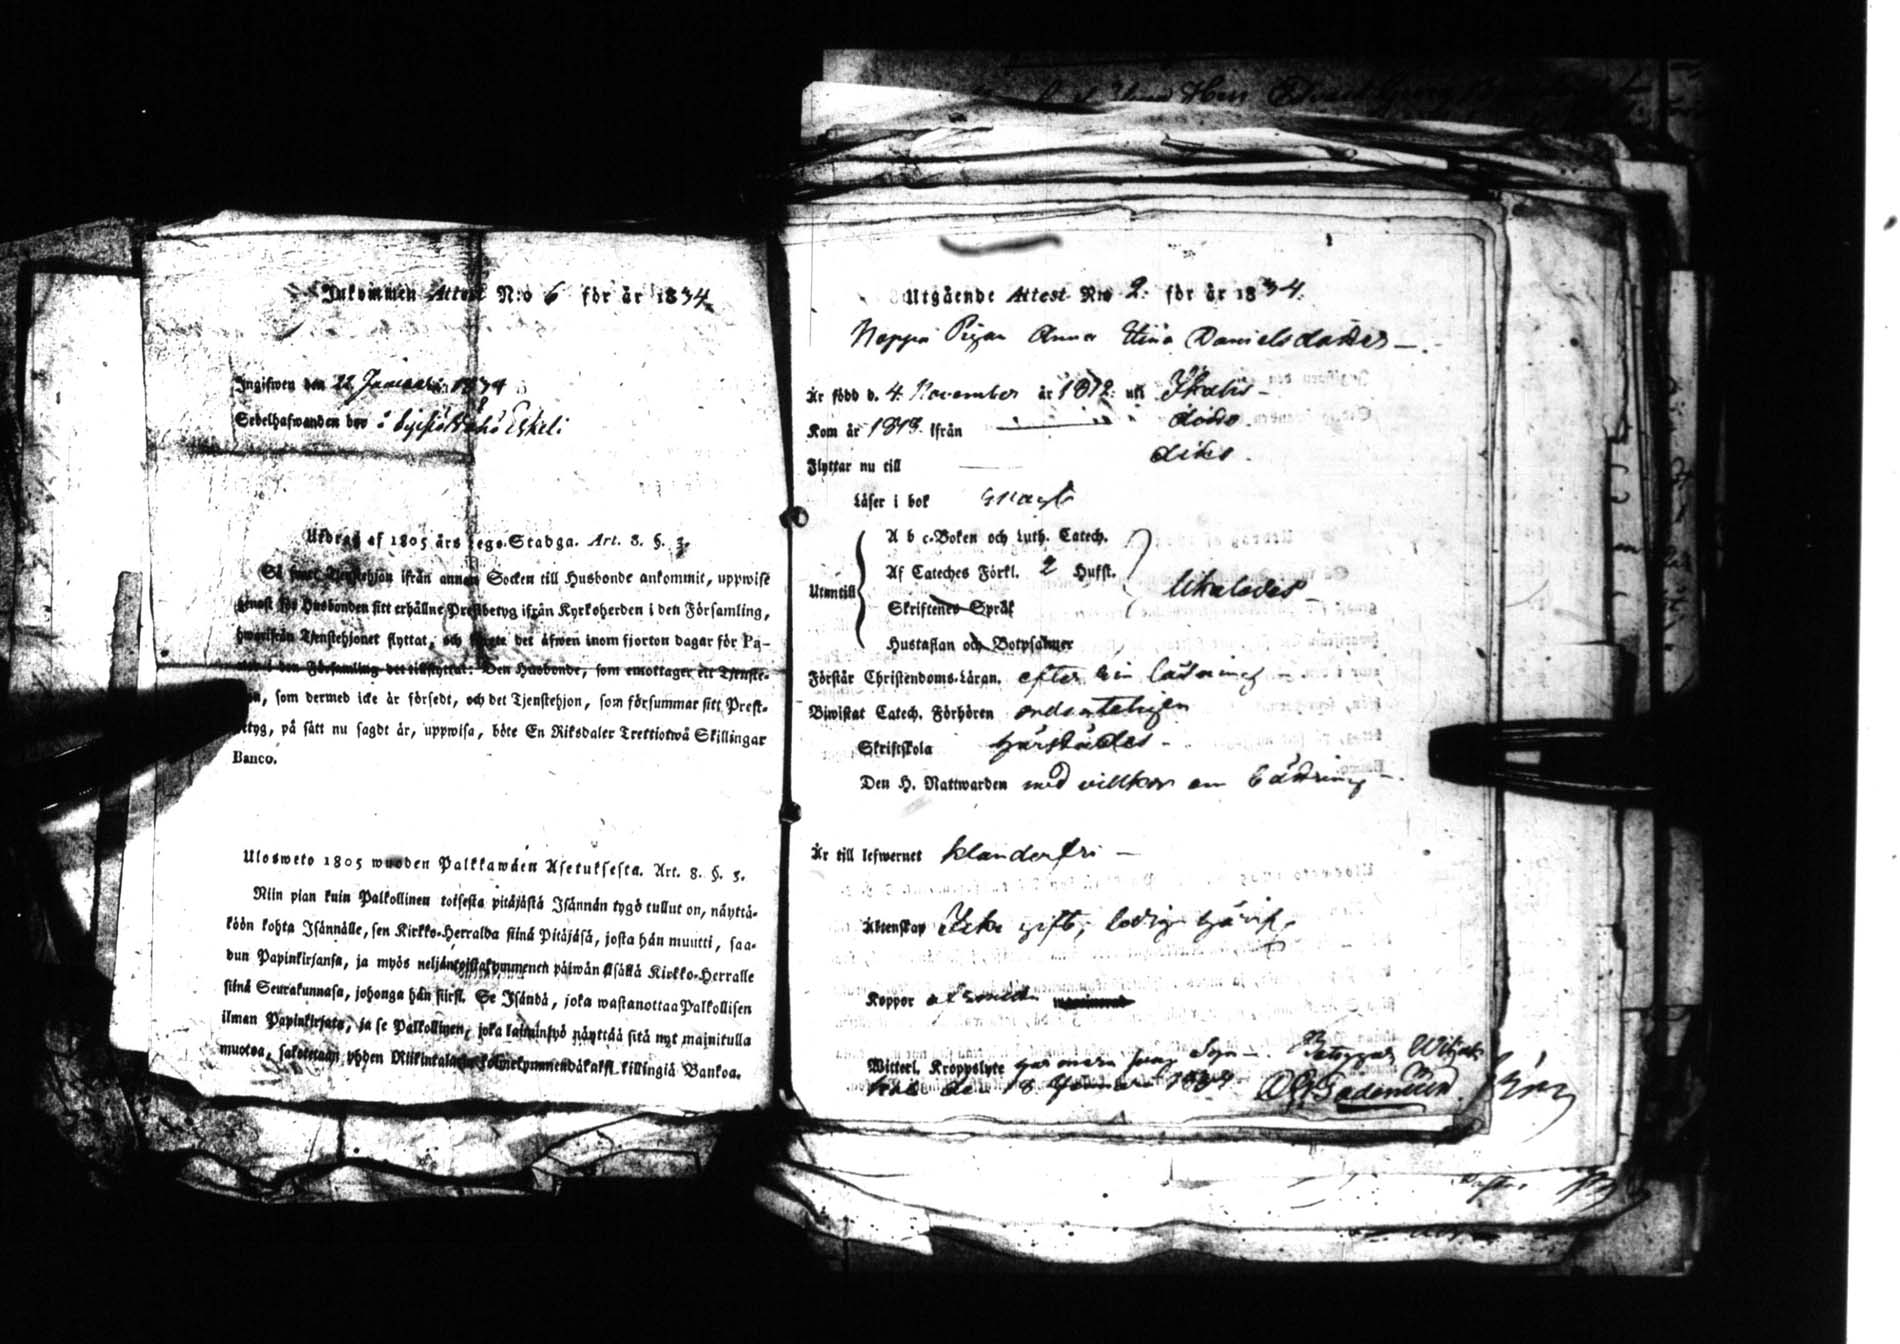 Inkommen Attest N:o 6 för år 1834
Ingifwen den 22 Januari 1834
Sedelhafwanden bor
Utdrag af 1805 års Lego-Stadga. Art. 8. §. 3.
Så snart Tjenstehjon ifrån annan Socken till Husbonde ankommit, uppwise
genast för Husbonden sitt erhållne Prestbetyg ifrån Kyrkoherden i den Församling,
hwarifrån Tjenstehjonet flyttat, och det äfwen inom fjorton dagar för Pa-
i den Församling det tillflyttat: Den Husbonde, som emottager ett Tjenste-
som dermed icke är försedt, och det Tjenstehjon, som försummar sitt Prest-
betyg, på sätt nu sagdt är, uppwisa, böte En Riksdaler Trettiotwå Skillingar
Banco.
Ulosweto 1805 wuoden Palkkawäen Asetuksesta. Art. 8. §. 3.
Niin pian kuin Palkollinen toisesta pitäjästä Isännän tygö tullut on, näyttä-
köön kohta Isännälle, sen Kirkko-Herralda siinä Pitäjäsä, josta hän muutti, saa-
dun Papinkirjansa, ja myös neljäntoistakymmenen päiwän sisällä Kirkko-Herralle
siinä Seurakunnasa, johonga hän siirsi. Se Isändä, joka wastanottaa Palkollisen
ilman Papinkirjata, ja se Palkollinen, joka laiminlyö näyttää sitä nyt mainitulla
muotoa, sakotetaan yhden Riikintalarin kolmekymmendäkaksi killingiä Bankoa.
Utgående Attest N:o 2. för år 1834.
Pigan Anna Stina Danielsdotter
Är född d. 4. November år 1812. uti Ikalis
Kom år 1813. ifrån dito
Flyttar nu till dito.
Läser i bok svagt
Utantill
A b c-Boken och Luth. Catech.
Af Cateches Förkl. 2 Hufst.
Skriftenes Språk
Hustaflan och Botpsalmer
likaledes
Förstår Christendoms-Läran. efter sin läsning
Biwistat Catech. Förhören ordenteligen
Skriftskola härstädes
Den H. Nattwarden med villkor om bättring
Är till lefwernet klanderfri
Äktenskap Icke gift, ledig härif.
Koppor
Witterl. Kroppslyte
den 18 Januari 1834